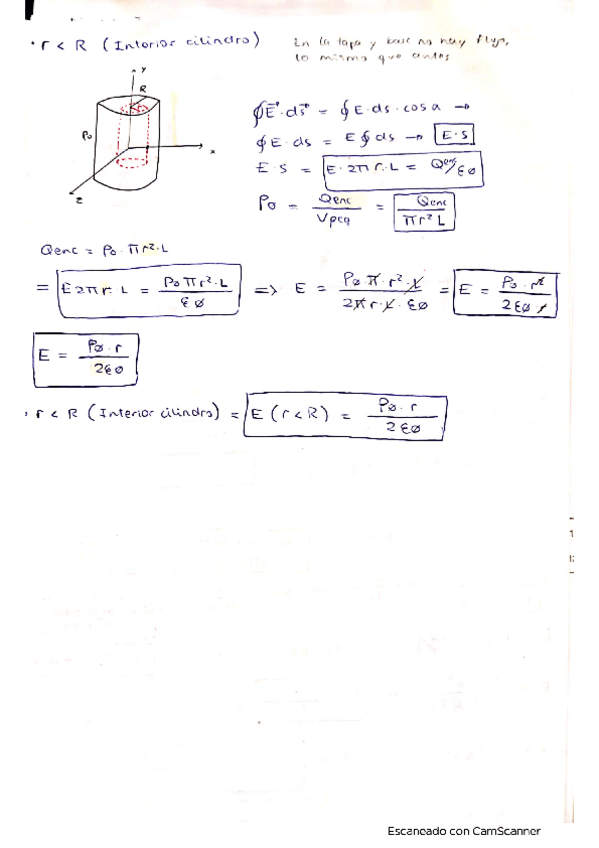 · r < R (Interior cilindro)
En la tapa y base no hay flujo,
lo mismo que antes
y
R
ρo
x
z
∮E⃗·ds⃗ = ∮E·ds·cos α →
∮E·ds = E∮ds → E·S
E·S = E·2π r·L = Qenc/εø
ρo = Qenc/Vpeq = Qenc/πr²L
Qenc = ρo·πr²·L
= E2πr·L = ρoπr²·L/εø => E = ρø·π·r²·L/2πr·L·εø = E = ρo·r²/2εø·r
E = ρø·r/2εø
· r < R (Interior cilindro) = E(r<R) = ρø·r/2εø
Escaneado con CamScanner